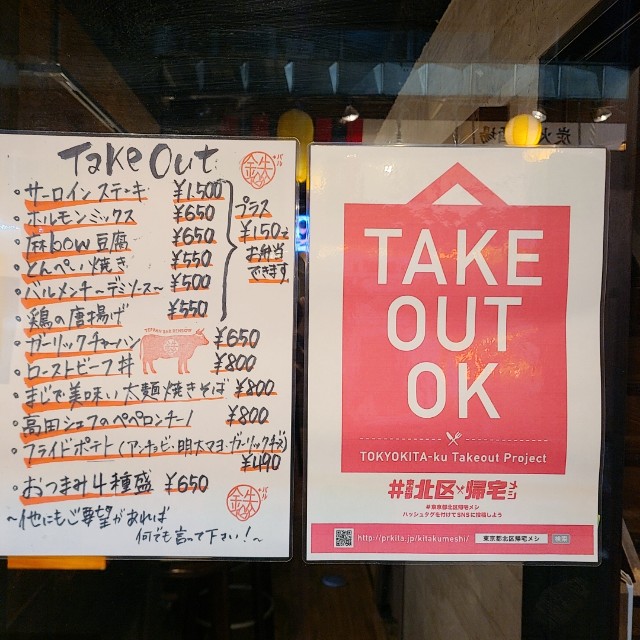 Take Out
・サーロインステーキ ¥1,500
・ホルモンミックス ¥650
・麻bow豆腐 ¥650
・とんぺい焼き ¥550
・バルメンチーデミソース〜 ¥500
・鶏の唐揚げ ¥550
プラス
¥150で
お弁当
できます
・ガーリックチャーハン ¥650
・ローストビーフ丼 ¥800
・まじで美味い太麺焼きそば ¥800
・高田シェフのペペロンチーノ ¥800
・フライドポテト(アンチョビ・明太マヨ・ガーリックチーズ)
¥490
・おつまみ4種盛 ¥650
〜他にもご要望があれば
何でも言って下さい!〜
TAKE
OUT
OK
TOKYOKITA-ku Takeout Project
#東京都北区帰宅メシ
#東京都北区帰宅メシ
ハッシュタグを付けてSNSに投稿しよう
http://prkita.jp/kitakumeshi/
東京都北区帰宅メシ 検索